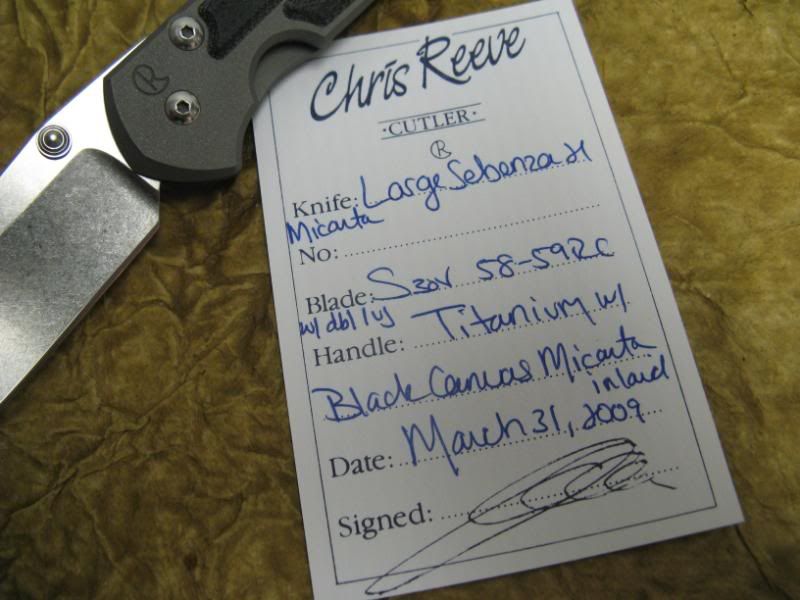 Chris Reeve
·CUTLER·
R
Knife: Large Sebenza 21
Micarta
No:
Blade: S30V 58-59RC
w/ dbl lug
Handle: Titanium w/
Black Canvas Micarta
inlaid
Date: March 31, 2009
Signed:
R